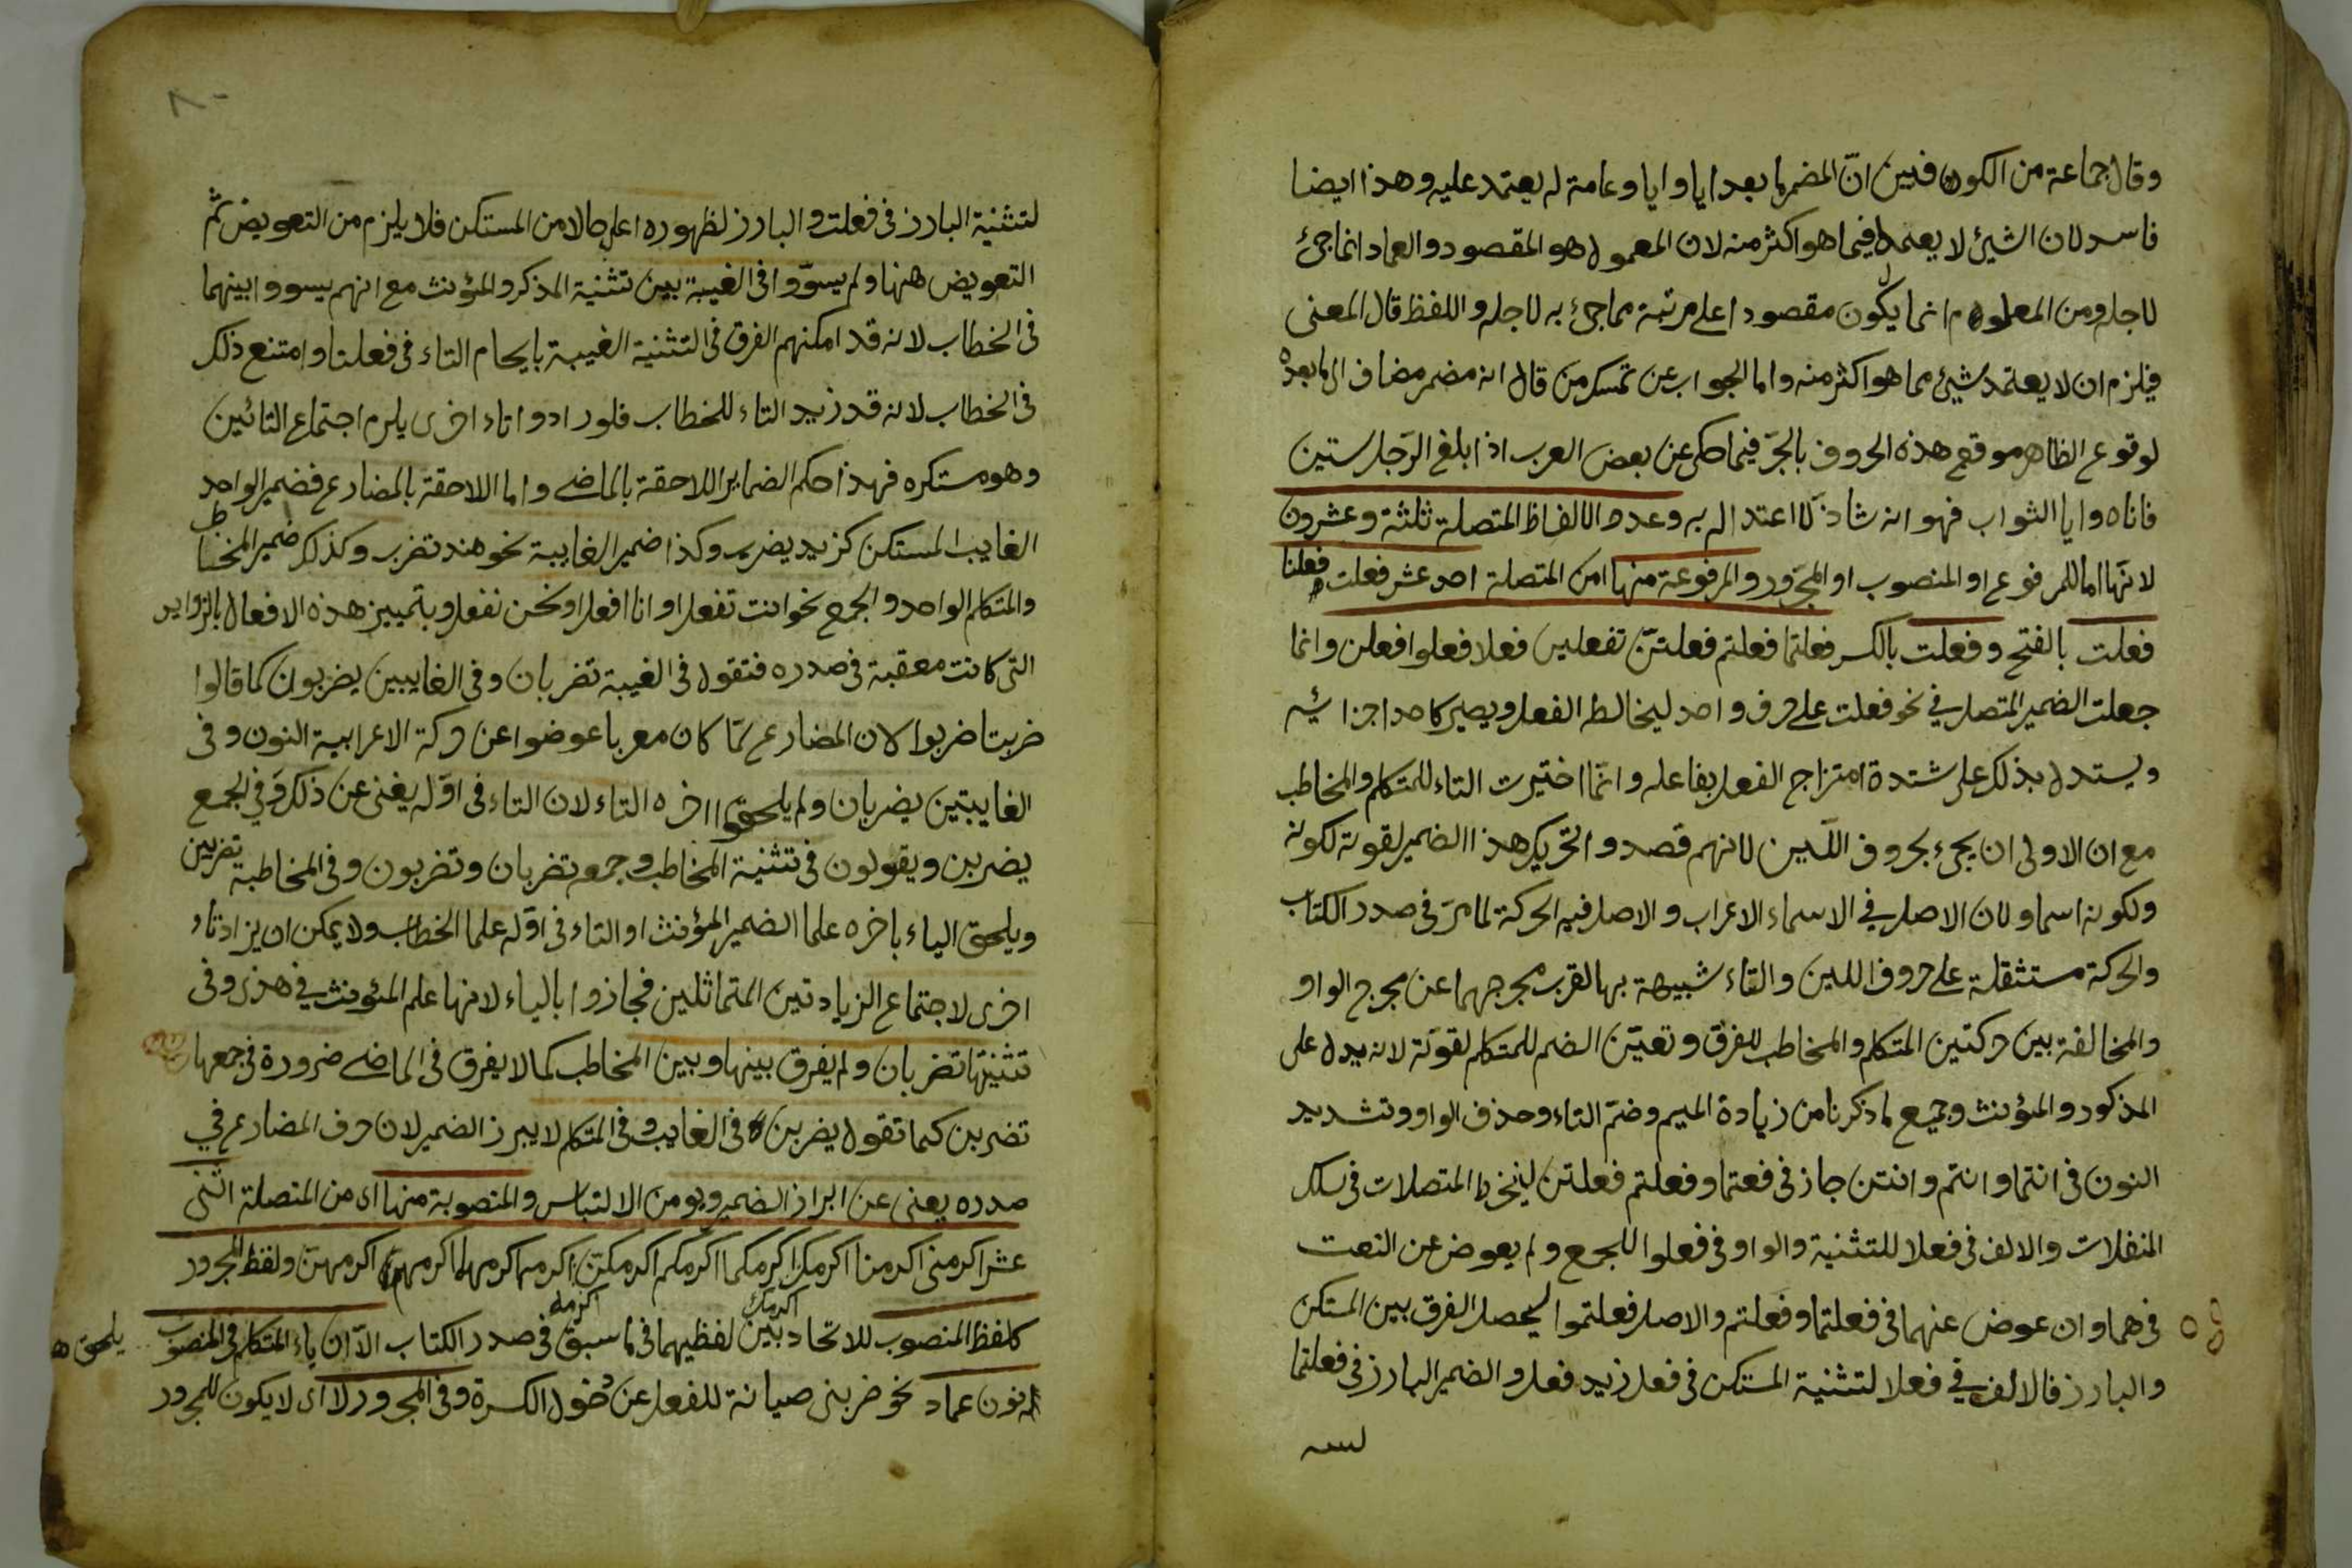 وقال جماعة من الكوفيين انّ المضمر ما بعد ايا وايا وعامة له يعتمد عليه وهذا ايضا
فاسد لان الشيئ لا يعمد فيما هو اكثر منه لان المعمول هو المقصود والعماد انما جئ
لاجله ومن المعلوم انما يكون مقصودا اعلى مرتبة مما جئ به لاجله واللفظ قال المعنى
فيلزم ان لا يعتمد شيئ مما هو اكثر منه واما الجواب عن تمسك من قال انه مضمر مضاف الى ما بعده
لوقوع الظاهر موقع هذه الحروف بالجرّ فيما حكى عن بعض العرب اذا بلغ الرّجل ستين
فاياه وايا الثواب فهو انه شاذ لا اعتداد به وعدد الالفاظ المتصلة ثلثة وعشرون
لانّها اما للمرفوع او المنصوب او المجرور والمرفوعة منها من المتصلة احد عشر فعلت فعلنا
فعلت بالفتح وفعلت بالكسر فعلتما فعلتم فعلتنّ تفعلين فعلا فعلوا فعلن وانما
جعلت الضمير المتصل في نحو فعلت على حرف واحد ليخالط الفعل ويصير كاحد اجزائه
ويستدل بذلك على شدة امتزاج الفعل بفاعله وانّما اختيرت التاء للمتكلم والمخاطب
مع ان الاولى ان يجئ بحروف اللّين لانهم قصدوا تحريك هذا الضمير لقوته لكونه
ولكونه اسما ولان الاصل في الاسماء الاعراب والاصل فيه الحركة لما مرّ في صدر الكتاب
والحركة مستثقلة على حروف اللين والتاء شبيهة بها لقرب مخرجهما عن مخرج الواو
والمخالفة بين حركتين المتكلم والمخاطب للفرق وتعيّن الضم للمتكلم لقوّته لانه يدل على
المذكور والمؤنث وجميع ما ذكرنا من زيادة الميم وضمّ التاء وحذف الواو وتشديد
النون في انتما وانتم وانتن جاز في فعلتما وفعلتم فعلتن لينخرط المتصلات في سلك
المنفلات والالف في فعلا للتثنية والواو في فعلوا للجمع ولم يعوض عن النعت
في هما وان عوض عنهما في فعلتما وفعلتم والاصل فعلتموا ليحصل الفرق بين المستكن
والبارز فالالف في فعلا لتثنية المستكن في فعل زيد فعل والضمير البارز في فعلتما
لتثنية البارز في فعلت والبارز لظهوره اعلى حالا من المستكن فلا يلزم من التعويض ثم
التعويض ههنا ولم يسوّوا في الغيبة بين تثنية المذكر والمؤنث مع انهم يسووا بينهما
في الخطاب لانه قد امكنهم الفرق في التثنية الغيبة بايحام التاء في فعلتا وامتنع ذلك
في الخطاب لانه قد زيد التاء للخطاب فلو رادوا تاء اخرى يلزم اجتماع التائين
وهو مستكره فهذا حكم الضماير اللاحقة بالماضى واما اللاحقة بالمضارع فضمير الواحد
الغايب المستكن كزيد يضرب وكذا ضمير الغايبة نحو هند تضرب وكذلك ضمير المخاطب
والمتكلم الواحد والجمع نحو انت تفعل او انا افعل او نحن نفعل وبتمييز هذه الافعال بالزوايد
التى كانت معقبة في صدره فتقول في الغيبة تضربان وفي الغايبين يضربون كما قالوا
ضربتا ضربوا لان المضارع لمّا كان معربا عوضوا عن حركة الاعرابية النون وفى
الغايبتين يضربان ولم يلحقوا اخره التاء لان التاء في اوّله يغنى عن ذلك وفي الجمع
يضربن ويقولون في تثنية المخاطب وجمعه تضربان وتضربون وفي المخاطبة تضربين
ويلحق الياء باخره علما الضمير المؤنث او التاء في اوّله علما الخطاب ولا يمكن ان يزاد تاء
اخرى لاجتماع الزيادتين المتماثلين فجازوا بالياء لانها علم المئونث في هذى وفى
تثنيتها تضربان ولم يفرق بينها وبين المخاطب كما لا يفرق في الماضى ضرورة في جمعها
تضربن كما تقول يضربن في الغايب وفى المتكلم لا يبرز الضمير لان حرف المضارع في
صدره يعنى عن ابراز الضمير ويومن الالتباس والمنصوبة منها اى من المتصلة اثنى
عشر اكرمنى اكرمنا اكرمك اكرمكما اكرمكم اكرمكنّ اكرمه اكرمها اكرمهما اكرمهم اكرمهنّ ولفظ المجرور
اكرمك اكرمه
كلفظ المنصوب للاتحاد بين لفظيهما في ما سبق في صدر الكتاب الّا ان ياء المتكلم في المنصوب يلحق
نون عماد نحو ضربنى صيانة للفعل عن دخول الكسرة وفي المجرور لا اى لا يكون للمجرور